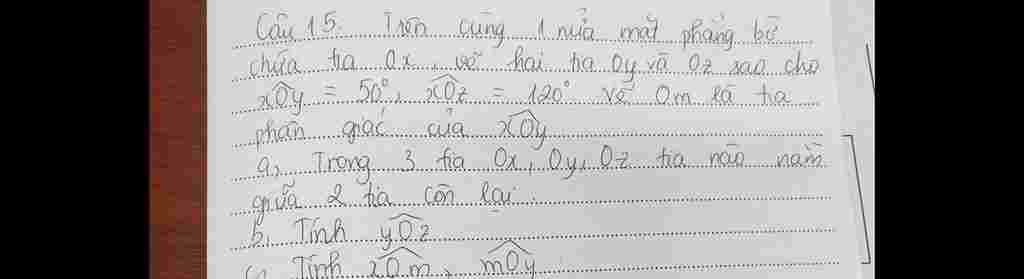 Câu 15. Trên cùng 1 nửa mặt phẳng bờ
chứa tia Ox, vẽ hai tia Oy và Oz sao cho
xOy = 50°, xOz = 120° vẽ Om là tia
phân giác của xOy
a, Trong 3 tia Ox, Oy, Oz tia nào nằm
giữa 2 tia còn lại.
b, Tính yOz
c, Tính xOm, mOy